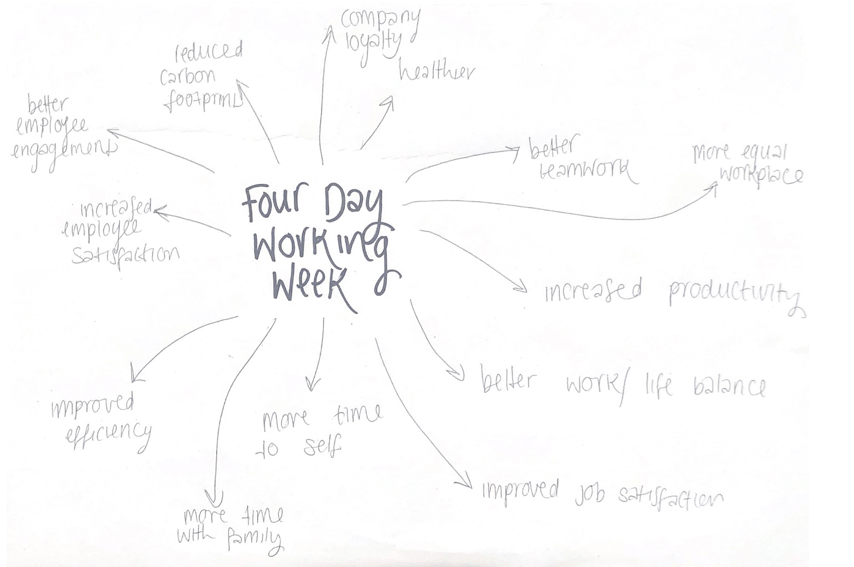 company
loyalty
healthier
reduced
carbon
footprint
better
employee
engagement
better
teamwork
more equal
workplace
increased
employee
satisfaction
Four Day
Working
Week
increased productivity
better work/life balance
improved
efficiency
more time
to self
improved job satisfaction
more time
with family